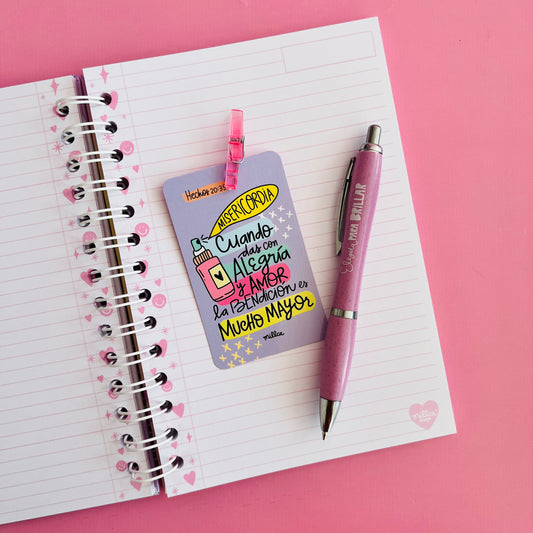 millae
Hechos 20:35
MISERICORDIA
Cuando
das con
ALEGRÍA
y AMOR
la BENDICIÓN es
MUCHO MAYOR
millae
PARA BRILLAR
millae